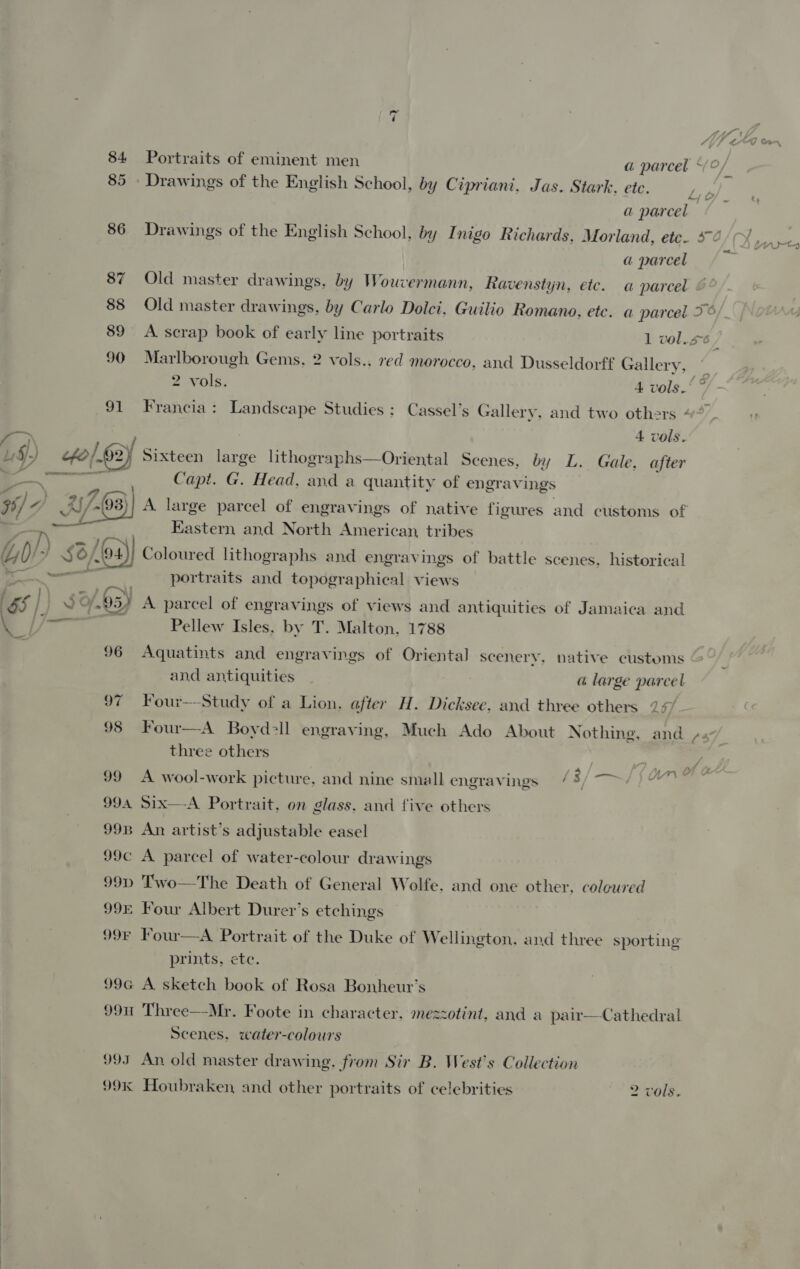 7
84 Portraits of eminent men a parcel 40/
85 Drawings of the English School, by Cipriani, Jas. Stark, etc.
a parcel
86 Drawings of the English School, by Inigo Richards, Morland, etc.
a parcel
87 Old master drawings, by Wouvermann, Ravenstyn, etc. a parcel
88 Old master drawings, by Carlo Dolci, Guilio Romano, etc. a parcel
89 A scrap book of early line portraits 1 vol.
90 Marlborough Gems, 2 vols., red morocco, and Dusseldorff Gallery,
2 vols. 4 vols.
91 Francia: Landscape Studies; Cassel's Gallery, and two others
4 vols.
92 Sixteen large lithographs—Oriental Scenes, by L. Gale, after
Capt. G. Head, and a quantity of engravings
93 A large parcel of engravings of native figures and customs of
Eastern and North American tribes
94 Coloured lithographs and engravings of battle scenes, historical
portraits and topographical views
95 A parcel of engravings of views and antiquities of Jamaica and
Pellew Isles, by T. Malton, 1788
96 Aquatints and engravings of Oriental scenery, native customs
and antiquities a large parcel
97 Four—Study of a Lion, after H. Dicksee, and three others 25/
98 Four—A Boydell engraving, Much Ado About Nothing, and
three others
99 A wool-work picture, and nine small engravings
99A Six—A Portrait, on glass, and five others
99B An artist's adjustable easel
99C A parcel of water-colour drawings
99D Two—The Death of General Wolfe, and one other, coloured
99E Four Albert Durer's etchings
99F Four—A Portrait of the Duke of Wellington, and three sporting
prints, etc.
99G A sketch book of Rosa Bonheur's
99H Three—Mr. Foote in character, mezzotint, and a pair—Cathedral
Scenes, water-colours
99J An old master drawing, from Sir B. West's Collection
99K Houbraken and other portraits of celebrities 2 vols.